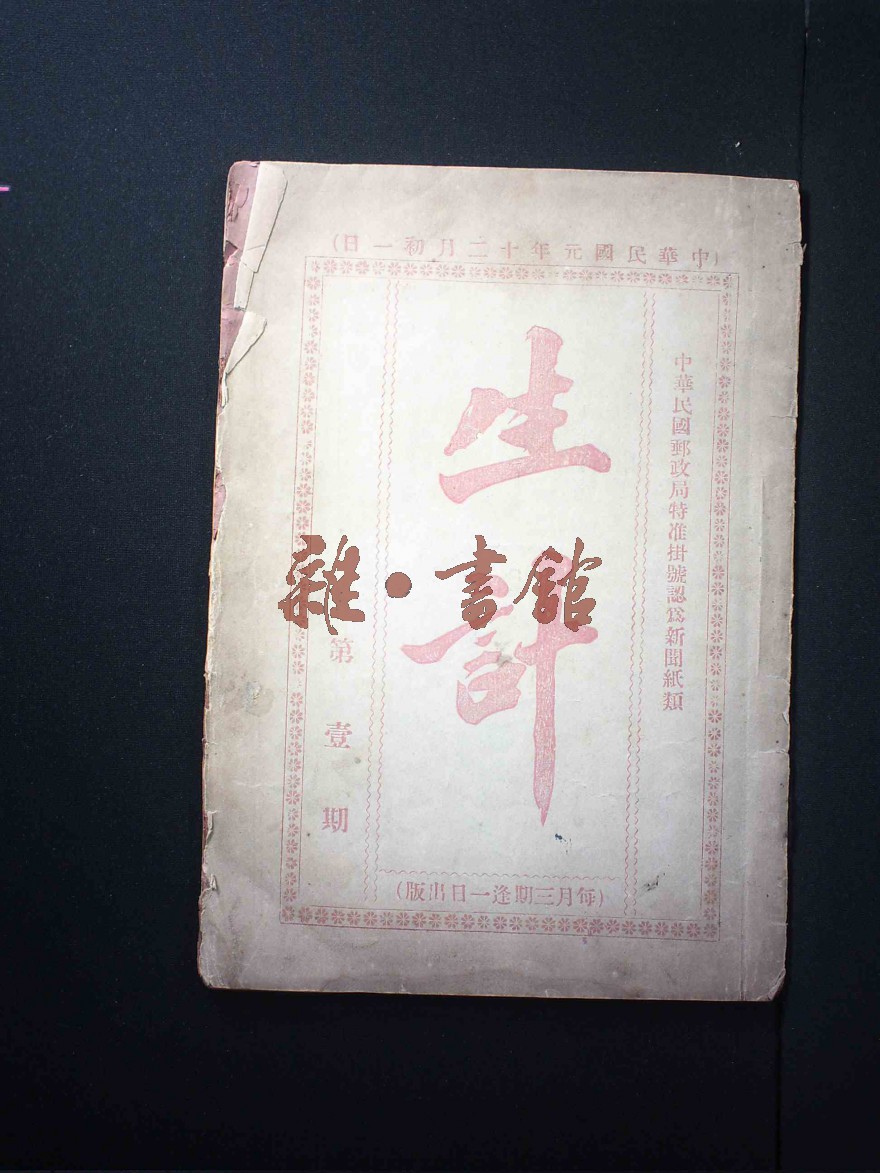 (中華民國元年十二月初一日)
中華民國郵政局特准掛號認爲新聞紙類
生計
第壹期
(每月三期逢一日出版)
雜·書館